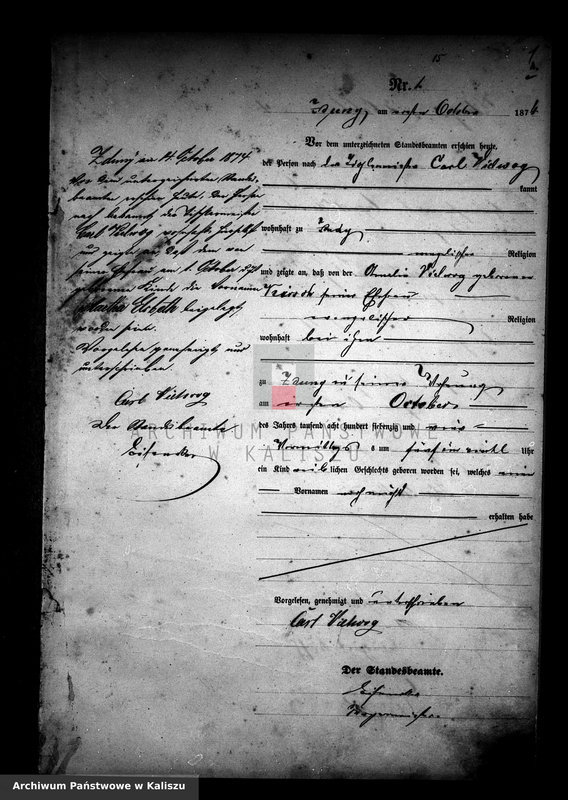 15
Nr. 1
Zduny, am ersten October 1874
Vor dem unterzeichneten Standesbeamten erschien heute,
der Person nach Carl
kannt
wohnhaft zu Zduny
evangelischer Religion
und zeigte an, daß von der Amalie geborenen
seiner Ehefrau
evangelischer Religion
wohnhaft bei ihm
zu Zduny in seiner Wohnung
am ersten October
des Jahrs tausend acht hundert siebenzig und vier
Vormittags um fünf ein viertel Uhr
ein Kind weiblichen Geschlechts geboren worden sei, welches einen
Vornamen noch nicht
erhalten habe
Vorgelesen, genehmigt und unterschrieben
Carl
Der Standesbeamte.
Bürgermeister
Zduny am 14. October 1874
Vor dem unterzeichneten Standes-
beamten erschien heute, der Person
nach bekannt, der Tischlermeister
Carl wohnhaft
und zeigte an, daß dem von
seiner Ehefrau am 1. October
geborenen Kinde die Vornamen
Martha Elsbeth beigelegt
worden seien.
Vorgelesen genehmigt und
unterschrieben
Carl
Der Standesbeamte
ARCHIWUM PAŃSTWOWE
W KALISZU
Archiwum Państwowe w Kaliszu